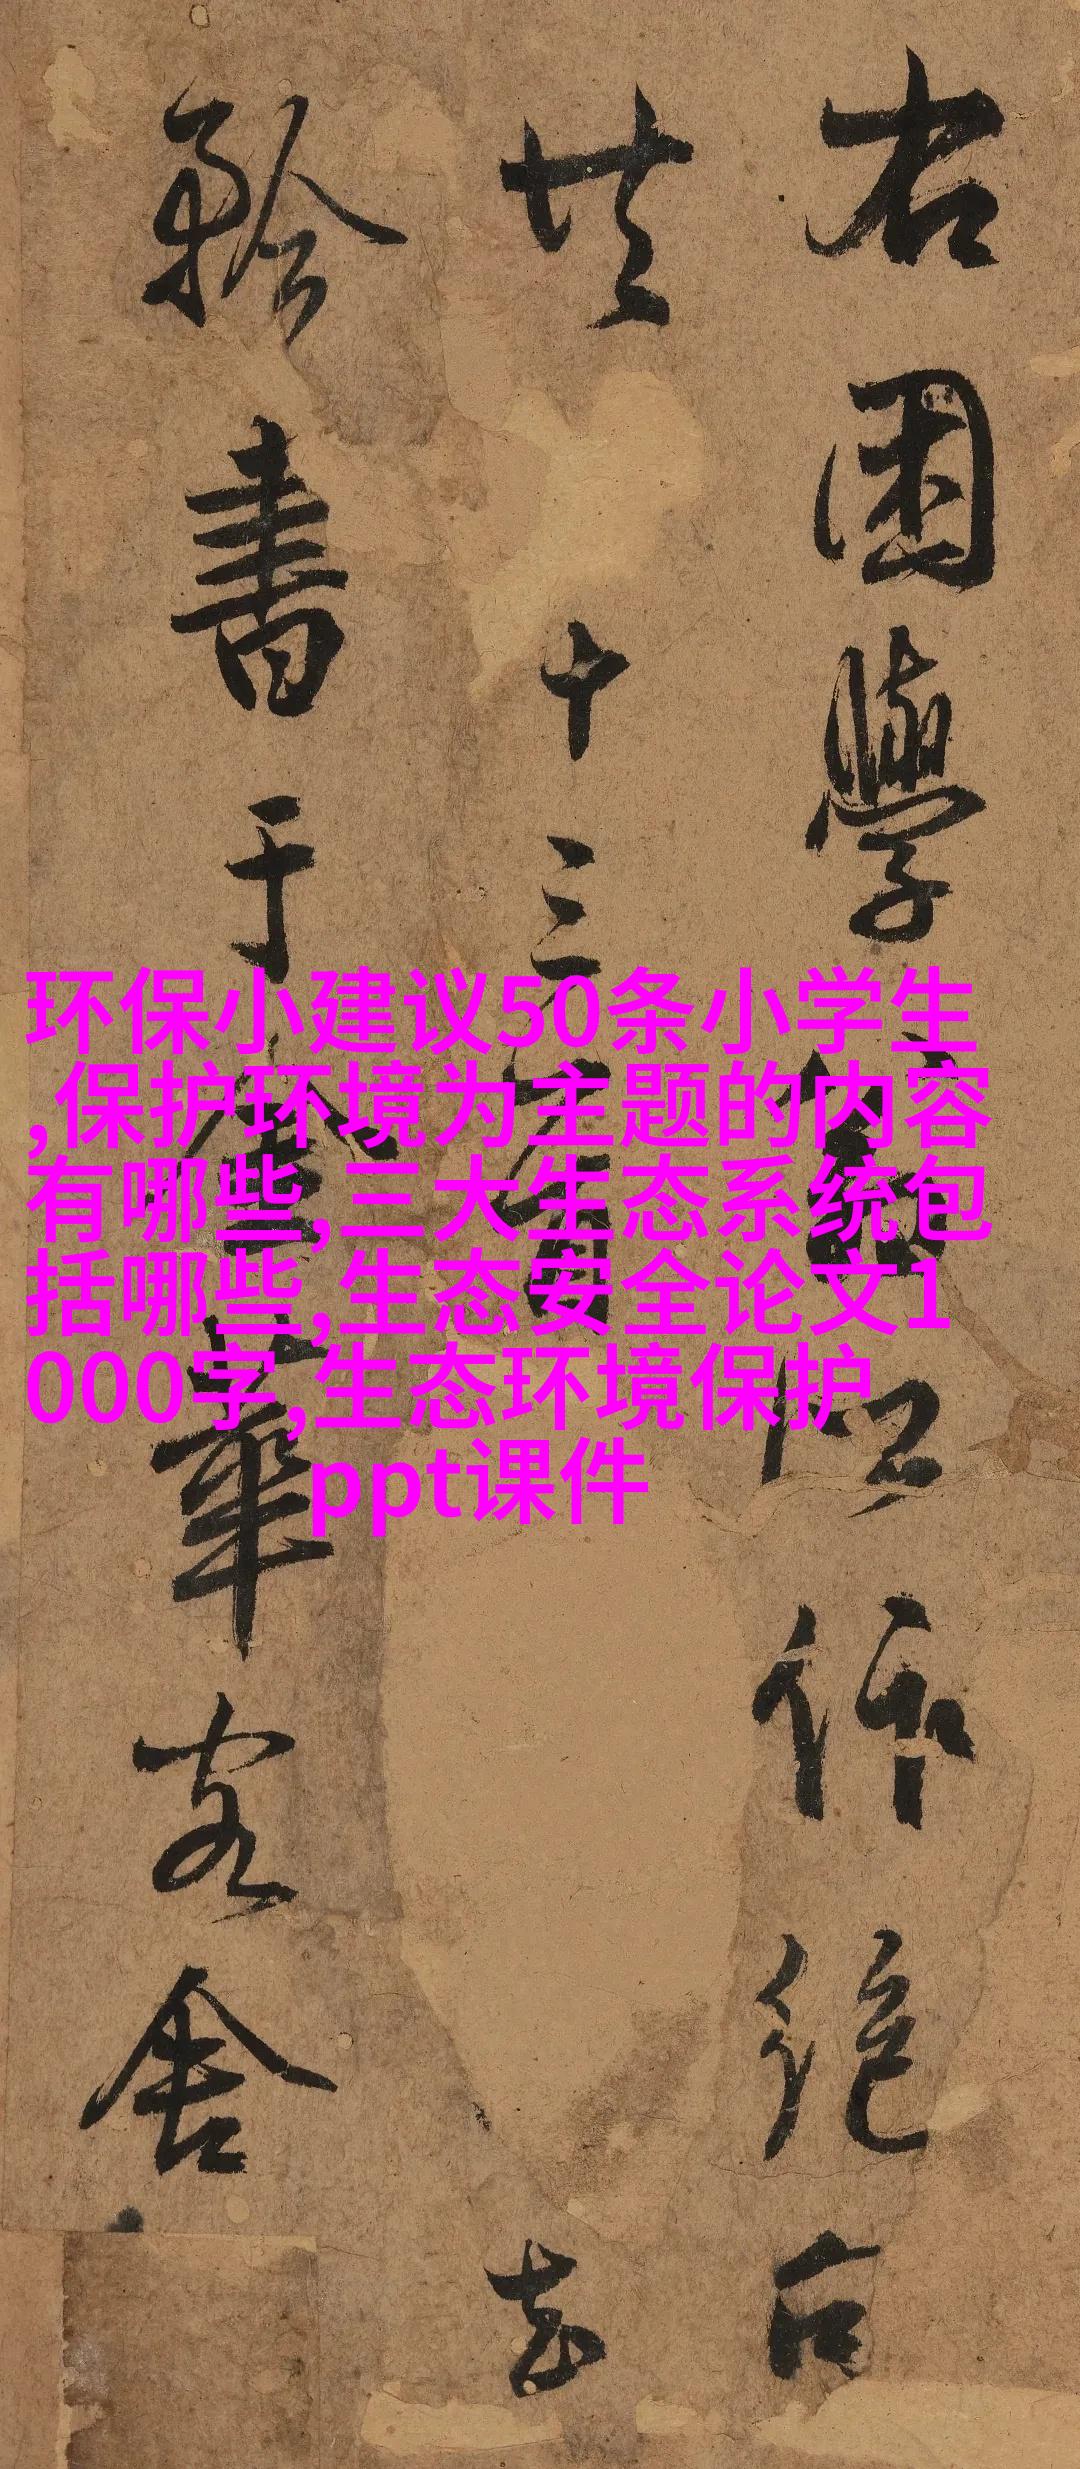 右困學
作絶句
共
十三
書于
客舍
环保小建议50条小学生
,保护环境为主题的内容
有哪些,三大生态系统包
括哪些,生态安全论文1
000字,生态环境保护
ppt课件